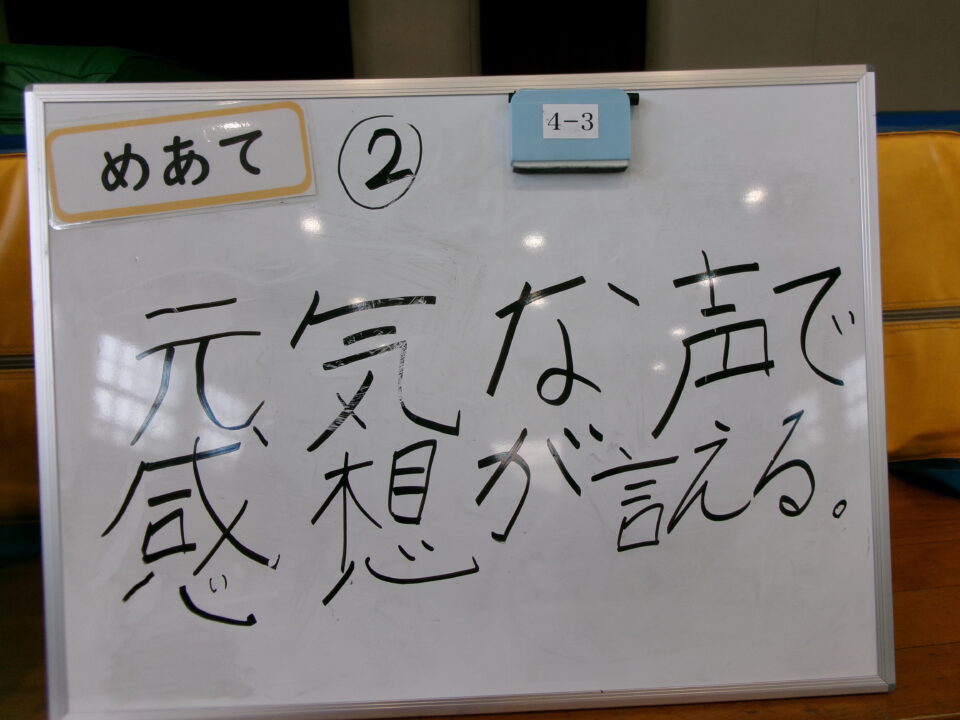 めあて ② 4-3
元気な声で
感想が言える。